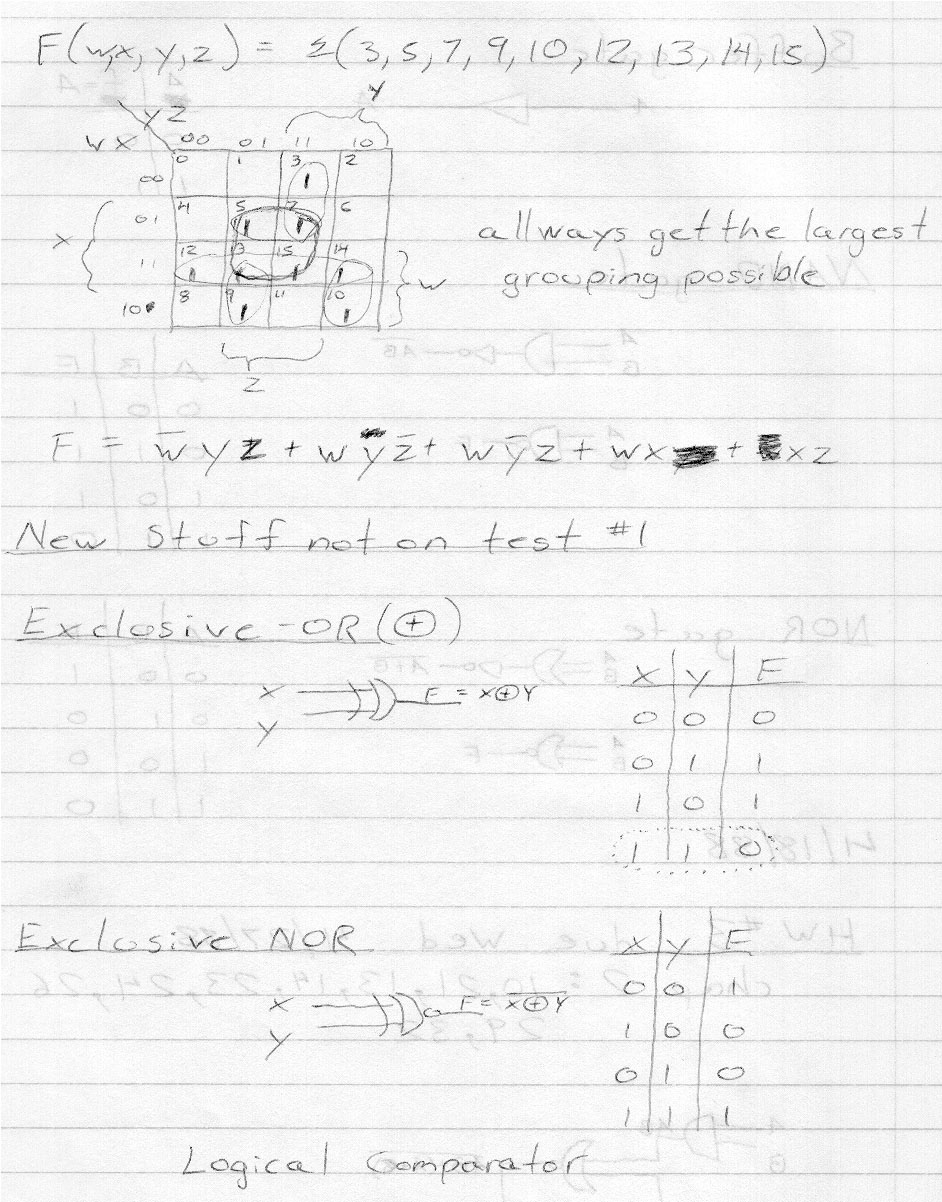 F(w,x,y,z) = Σ(3,5,7,9,10,12,13,14,15)
y
yz
wx 00 01 11 10
00 0 1 3 1 2
x 01 4 5 1 7 1 6
11 12 1 13 1 15 1 14 1 w
10 8 9 1 11 10 1
z
allways get the largest
grouping possible
F = w̅yz + wyz̅ + wy̅z + wx + xz
New Stuff not on test #1
Exclosive-OR(⊕)
x
y
F = x⊕y
x y F
0 0 0
0 1 1
1 0 1
1 1 0
Exclosive NOR
x
y
F = x̅⊕̅y̅
x y F
0 0 1
1 0 0
0 1 0
1 1 1
Logical Comparator